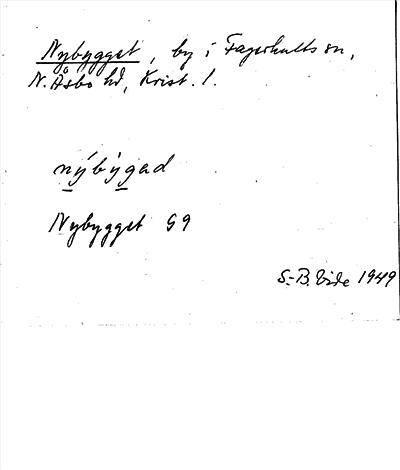 Nybygget, by i Fagerhults sn,
N. Åsbo hd, Krist. l.
nýbỳgad
Nybygget G9
S.-B. Vide 1949